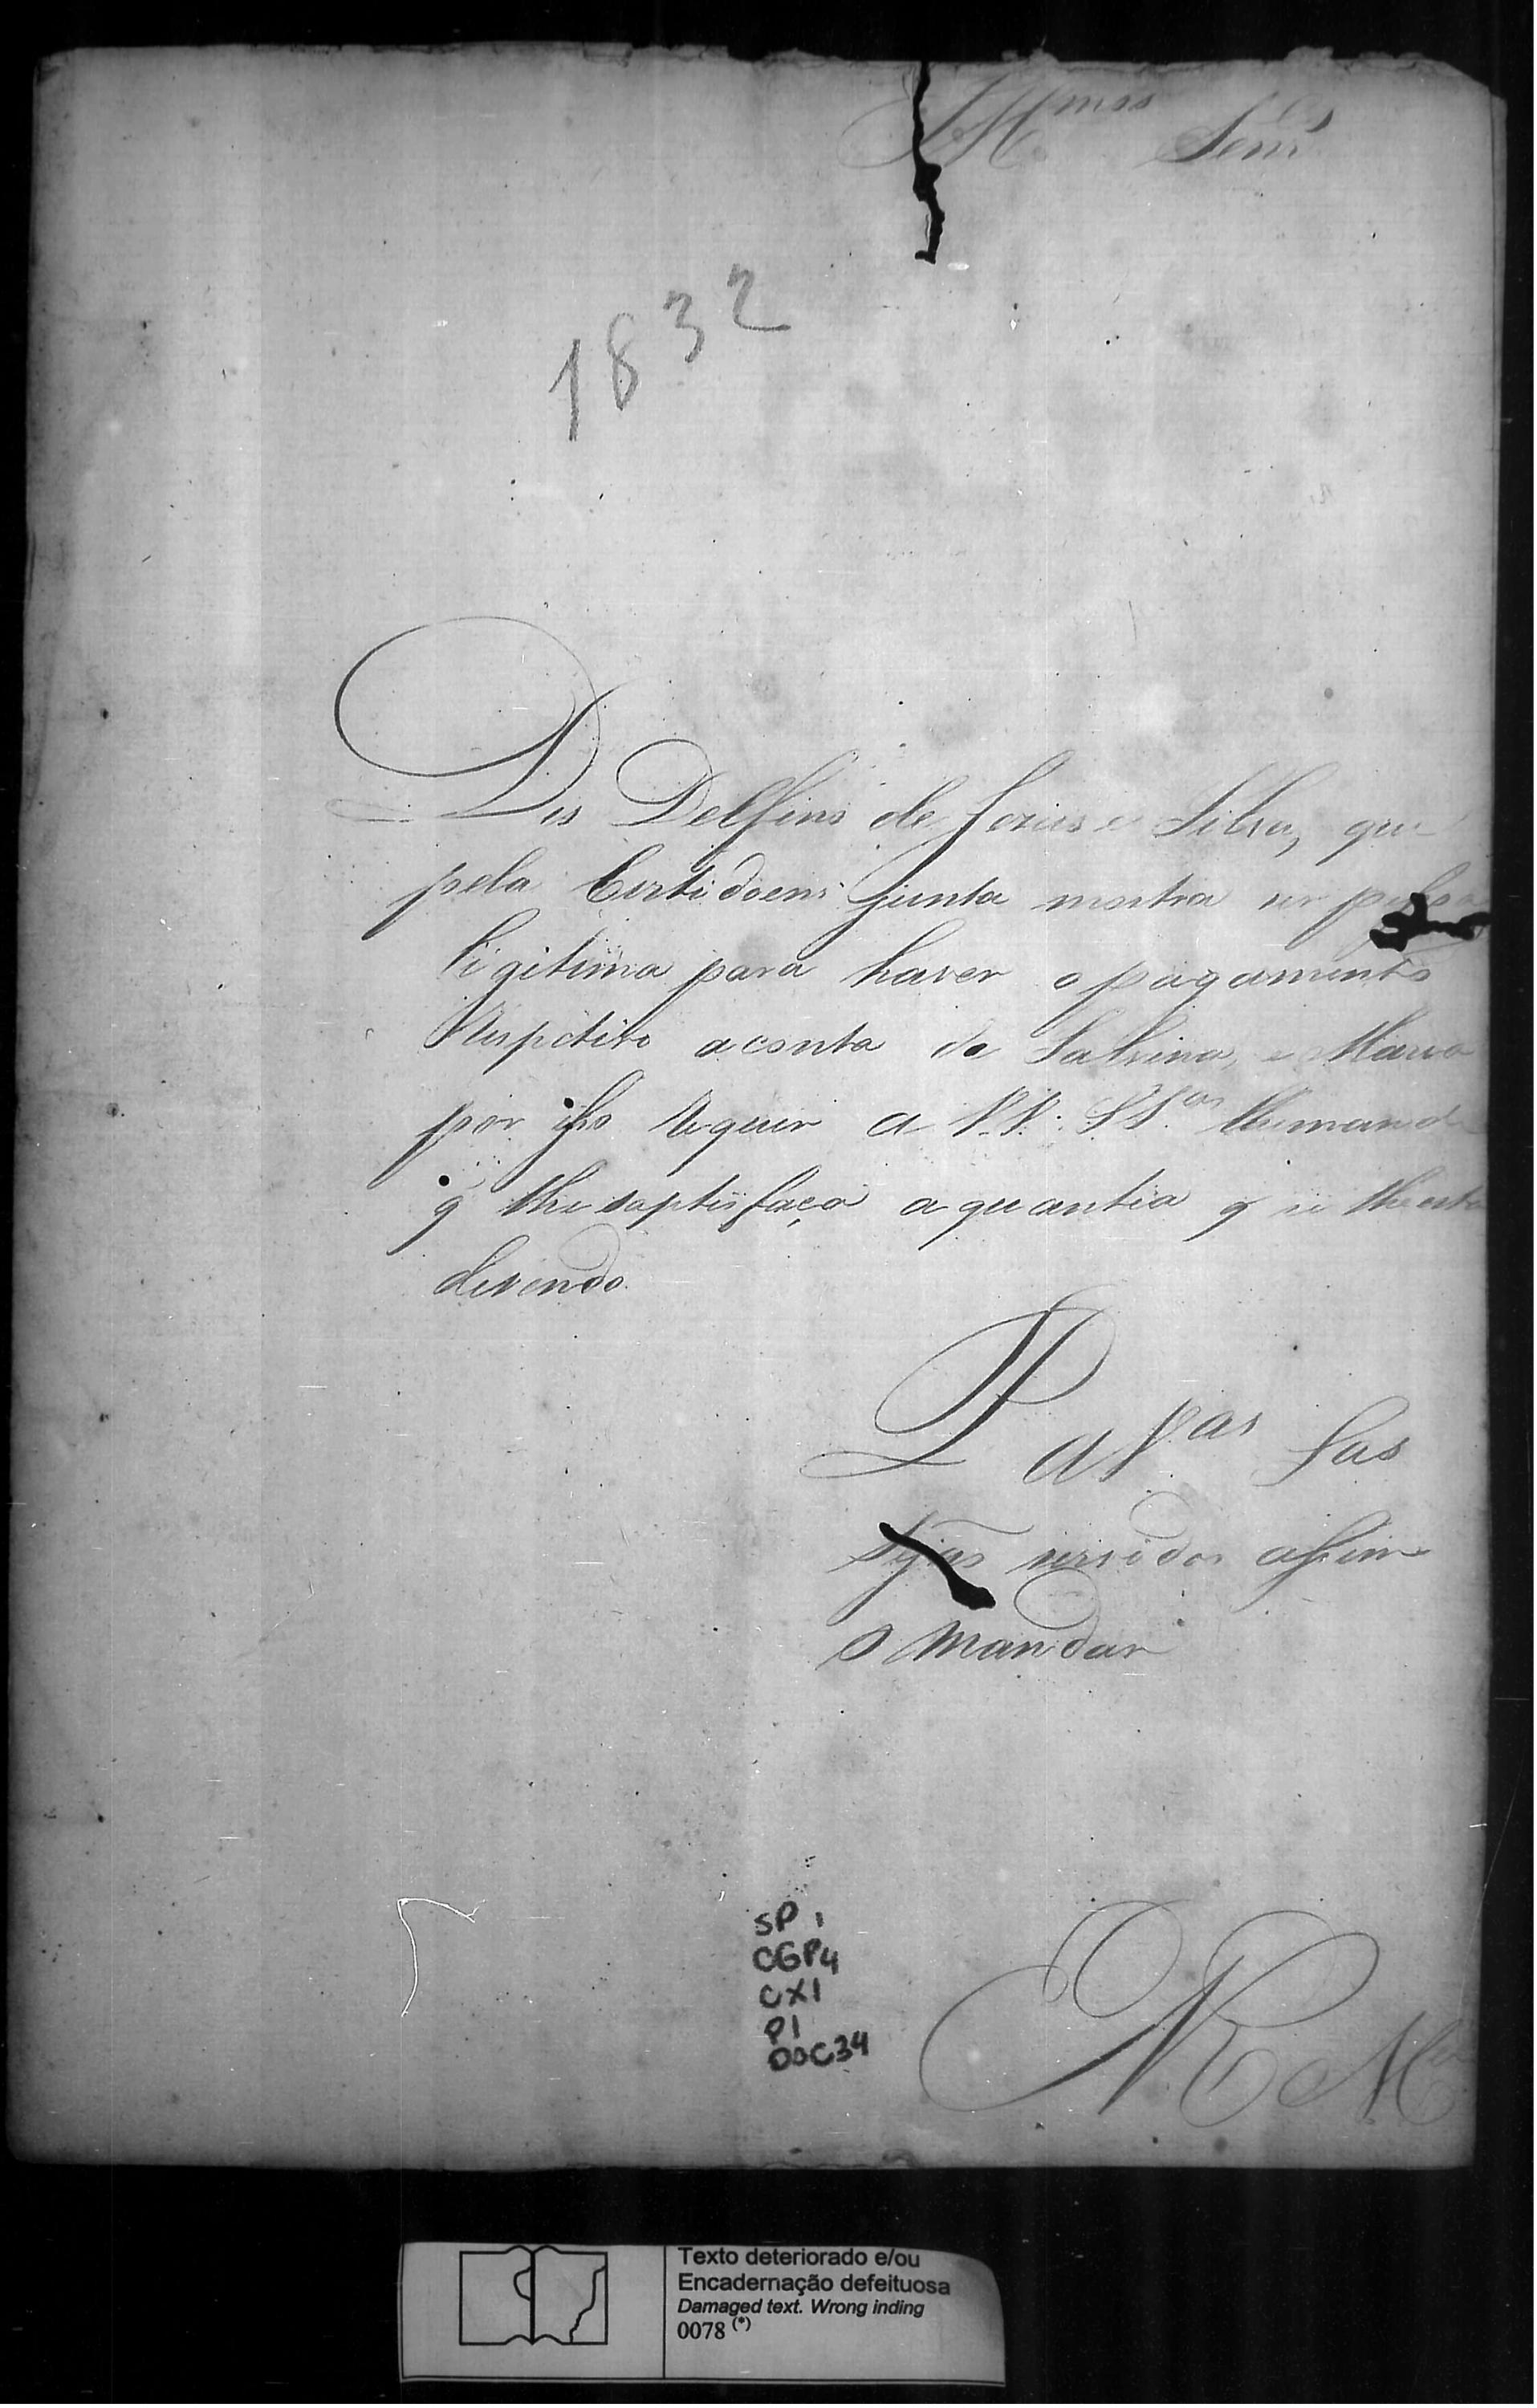 Illmos Senres
1832
Dis Delfino de e Silva, que
pela Certidoens junta mostra ser
ligitima para haver o pagamento
Respetivo a conta de Sabrina, e Maria
por iſso Requer a V.V. SS.as lhe mande
q̃ lhe saptisfaça a quantia q̃ se lhe esta
devendo.
P a V.as Sas
sejas servidos aſsim
o mandar
SP 1
CGP4
CX1
P1
DOC34
R M
Texto deteriorado e/ou
Encadernação defeituosa
Damaged text. Wrong inding
0078 (*)